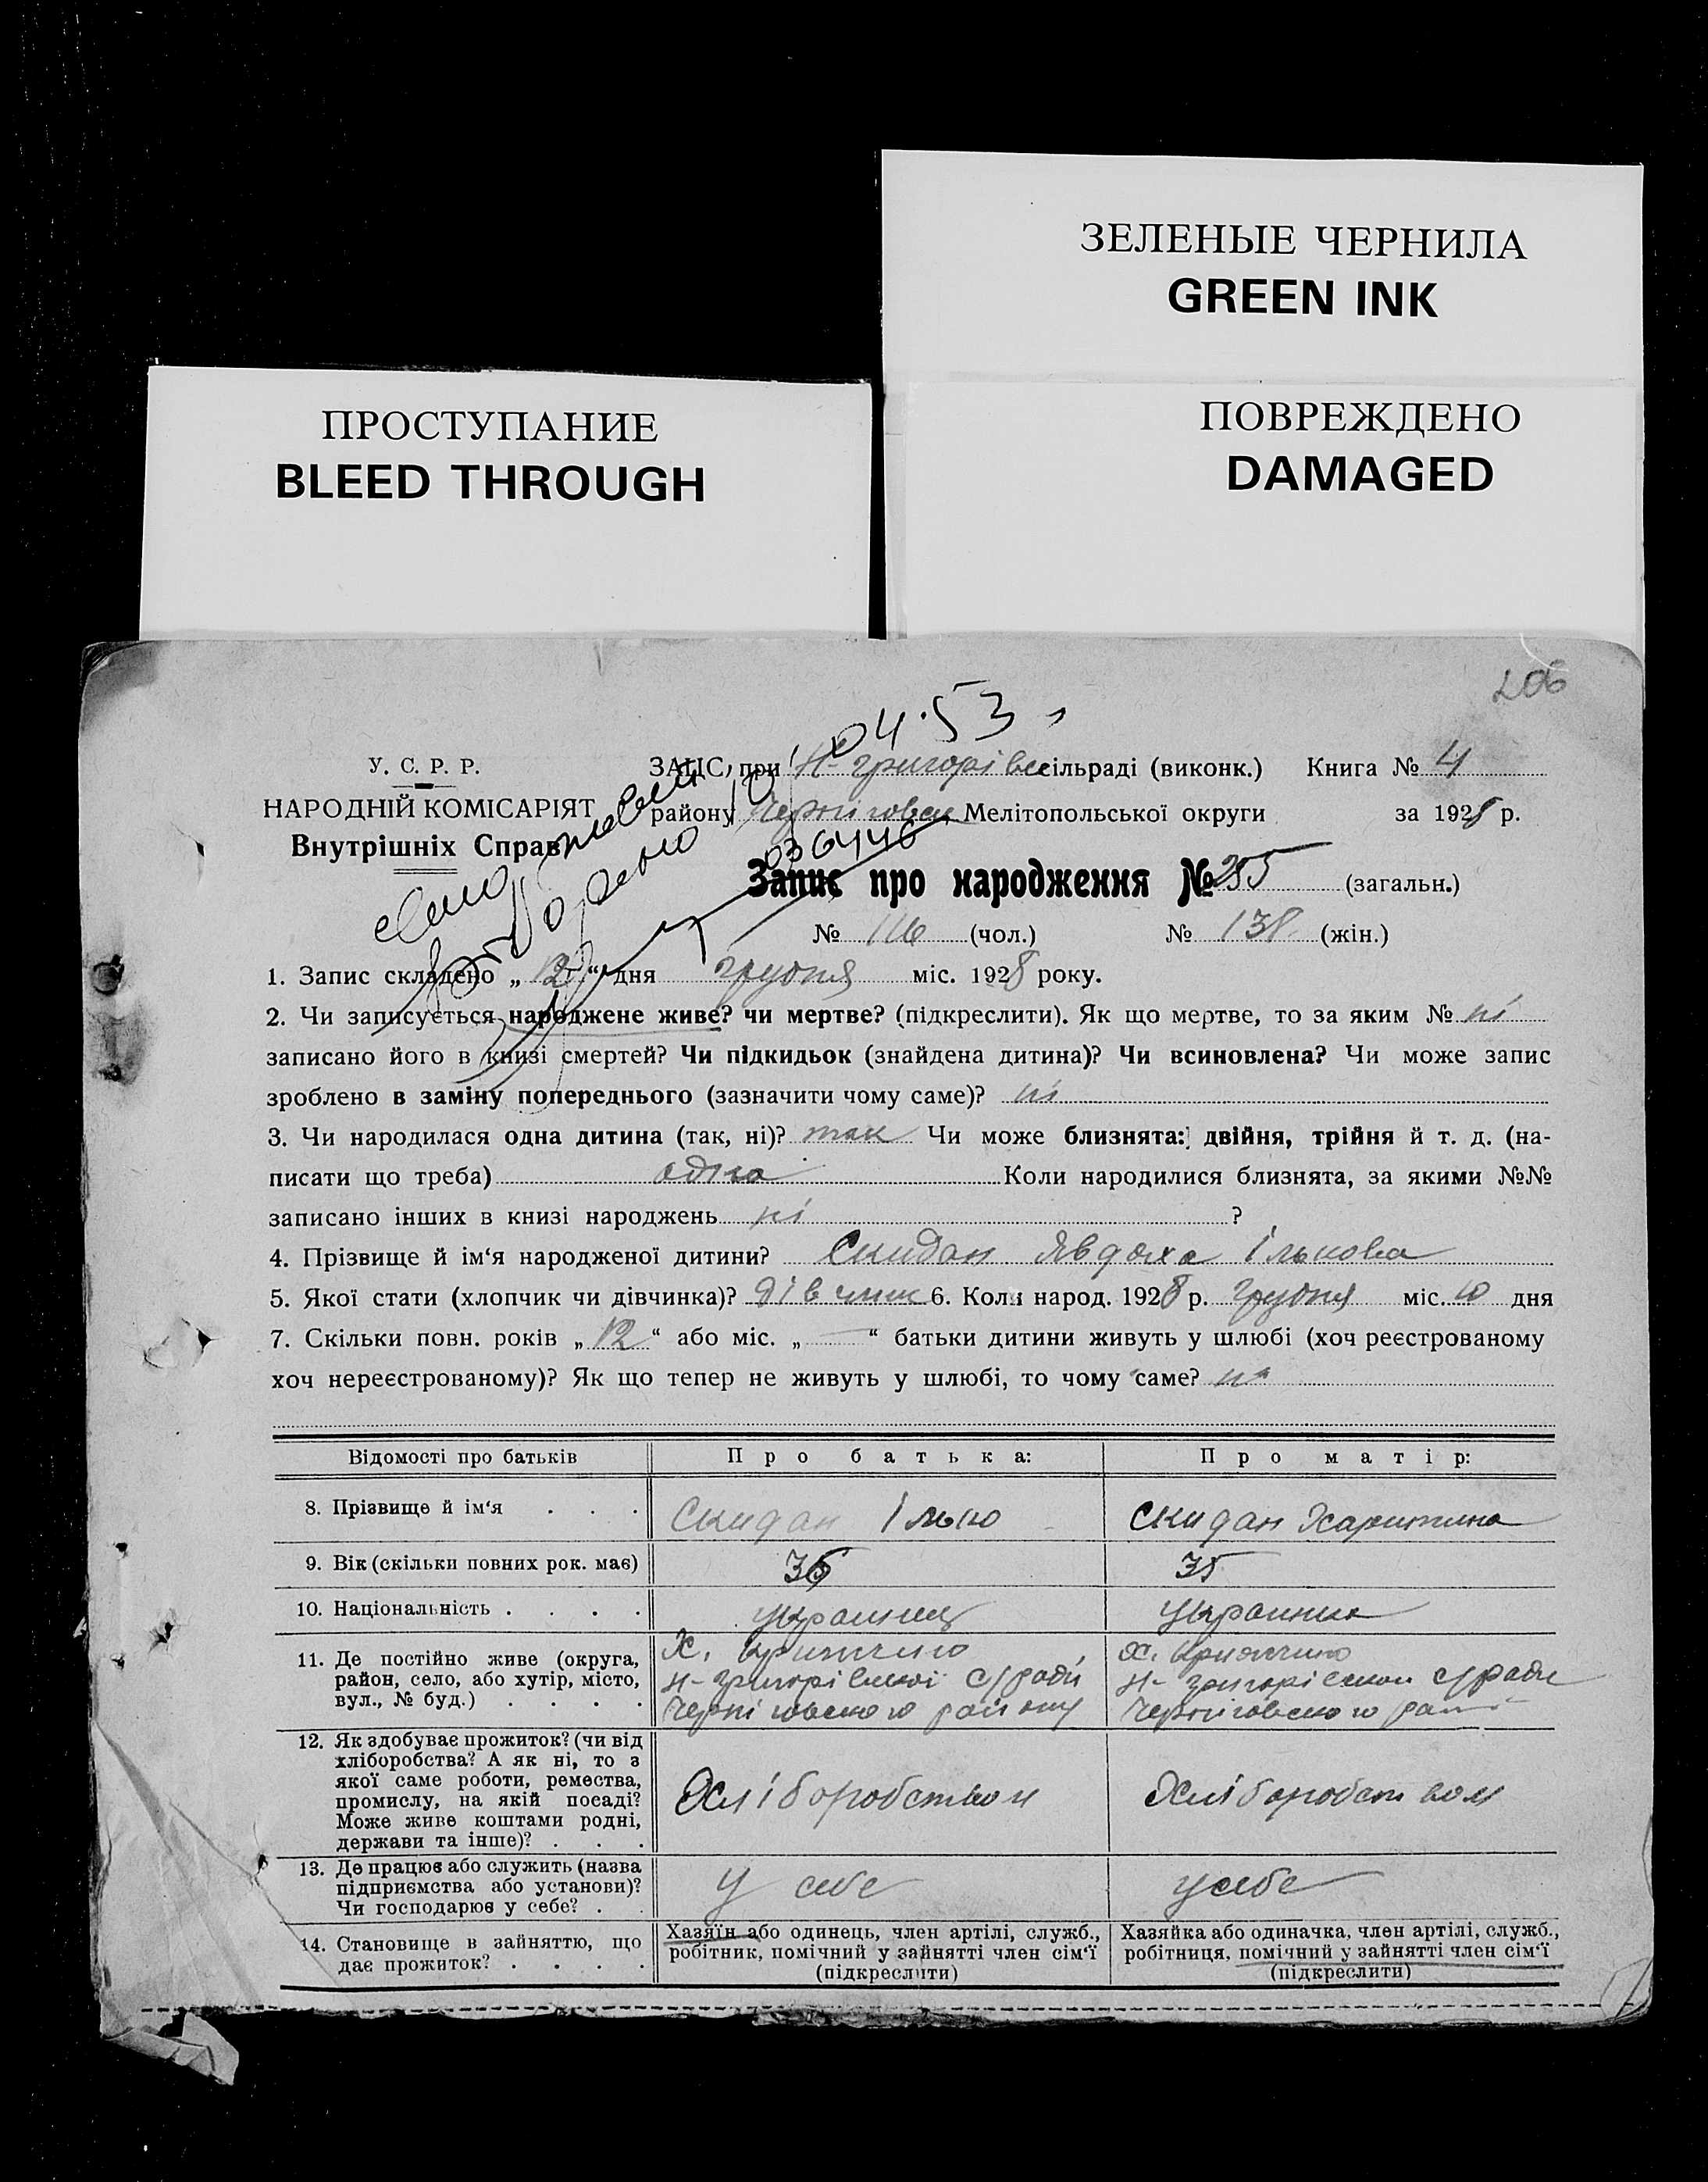 ЗЕЛЕНЫЕ ЧЕРНИЛА
GREEN INK
ПРОСТУПАНИЕ
BLEED THROUGH
ПОВРЕЖДЕНО
DAMAGED
206
04.53
У. С. Р. Р.
НАРОДНІЙ КОМІСАРІЯТ
Внутрішніх Справ
ЗАЦС, при Н-Григорівс сільраді (виконк.) Книга № 4
району Чернігівськ Мелітопольської округи за 1928 р.
036446
Запис про народження № 255 (загальн.)
№ 116 (чол.) № 138 (жін.)
1. Запис складено „ 12 “ дня грудня міс. 1928 року.
2. Чи записується народжене живе? чи мертве? (підкреслити). Як що мертве, то за яким № ні
записано його в книзі смертей? Чи підкидьок (знайдена дитина)? Чи всиновлена? Чи може запис
зроблено в заміну попереднього (зазначити чому саме)? ні
3. Чи народилася одна дитина (так, ні)? так Чи може близнята: двійня, трійня й т. д. (на-
писати що треба) одна Коли народилися близнята, за якими №№
записано інших в книзі народжень ні ?
4. Прізвище й ім‘я народженої дитини? Скидан Явдоха Ількова
5. Якої стати (хлопчик чи дівчинка)? дівчинк 6. Коли народ. 1928 р. грудня міс. 10 дня
7. Скільки повн. років „ 12 “ або міс. „ — “ батьки дитини живуть у шлюбі (хоч реєстрованому
хоч нереєстрованому)? Як що тепер не живуть у шлюбі, то чому саме?
Відомості про батьків Про батька: Про матір:
8. Прізвище й ім‘я . . . Скидан Ілько Скидан Харитина
9. Вік (скільки повних рок. має) 36 35
10. Національність . . . . українец українка
11. Де постійно живе (округа,
район, село, або хутір, місто,
вул., № буд.) . . . .
Х.
Н-Григорівської с/ради
Черніговского району
Х.
Н-Григорівской с/ради
Черніговского рай
12. Як здобуває прожиток? (чи від
хліборобства? А як ні, то з
якої саме роботи, ремества,
промислу, на якій посаді?
Може живе коштами родні,
держави та інше)? . . .
Хліборобством Хліборобством
13. Де працює або служить (назва
підприємства або установи)?
Чи господарює у себе? . .
у себе у себе
14. Становище в зайняттю, що
дає прожиток? . . . .
Хазяїн або одинець, член артілі, служб.,
робітник, помічний у зайнятті член сім‘ї
(підкреслити)
Хазяйка або одиначка, член артілі, служб.,
робітниця, помічний у зайнятті член сім‘ї
(підкреслити)